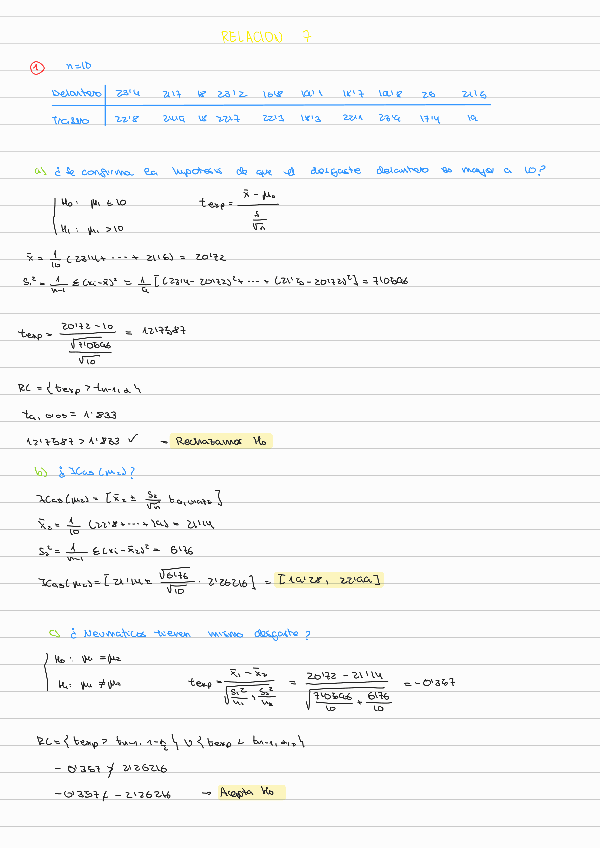 RELACION 7
1 n=10
Delantero 23'4 21'7 18 23'2 16'8 19'1 18'7 19'8 26 21'6
Trasero 22'8 24'9 18 22'7 22'3 18'3 22'1 23'9 17'4 19
a) ¿Se confirma la hipotesis de que el desgaste delantero es mayor a 10?
H₀: μ₁ ≤ 10 texp = (x̄ - μ₀) / (s/√n)
H₁: μ₁ > 10
x̄ = 1/10 (23'4 + ··· + 21'6) = 20'72
S₁² = 1/(n-1) Σ(xi - x̄)² = 1/9 [(23'4 - 20'72)² + ··· + (21'6 - 20'72)²] = 7'0696
texp = (20'72 - 10) / (√7'0696/√10) = 12'7387
RC = { texp > tn-1, α }
t9, 0'05 = 1'833
12'7387 > 1'833 ✓ → Rechazamos H₀
b) ¿IC95(μ₂)?
IC95(μ₂) = [x̄₂ ± S₂/√n t9, 0'0272]
x̄₂ = 1/10 (22'8 + ··· + 19) = 21'14
S₂² = 1/(n-1) Σ(xi - x̄₂)² = 6'76
IC95(μ₂) = [21'14 ± √6'76/√10 · 2'26216] = [19'28, 22'99]
c) ¿Neumaticos tienen mismo desgaste?
H₀: μ₁ = μ₂
H₁: μ₁ ≠ μ₂ texp = (x̄₁ - x̄₂) / √(S₁²/n₁ + S₂²/n₂) = (20'72 - 21'14) / √(7'0696/10 + 6'76/10) = -0'357
RC = { texp > tn-1, 1-α/2 } ∪ { texp < tn-1, α/2 }
- 0'357 ≯ 2'26216
- 0'357 ≮ - 2'26216 → Acepta H₀